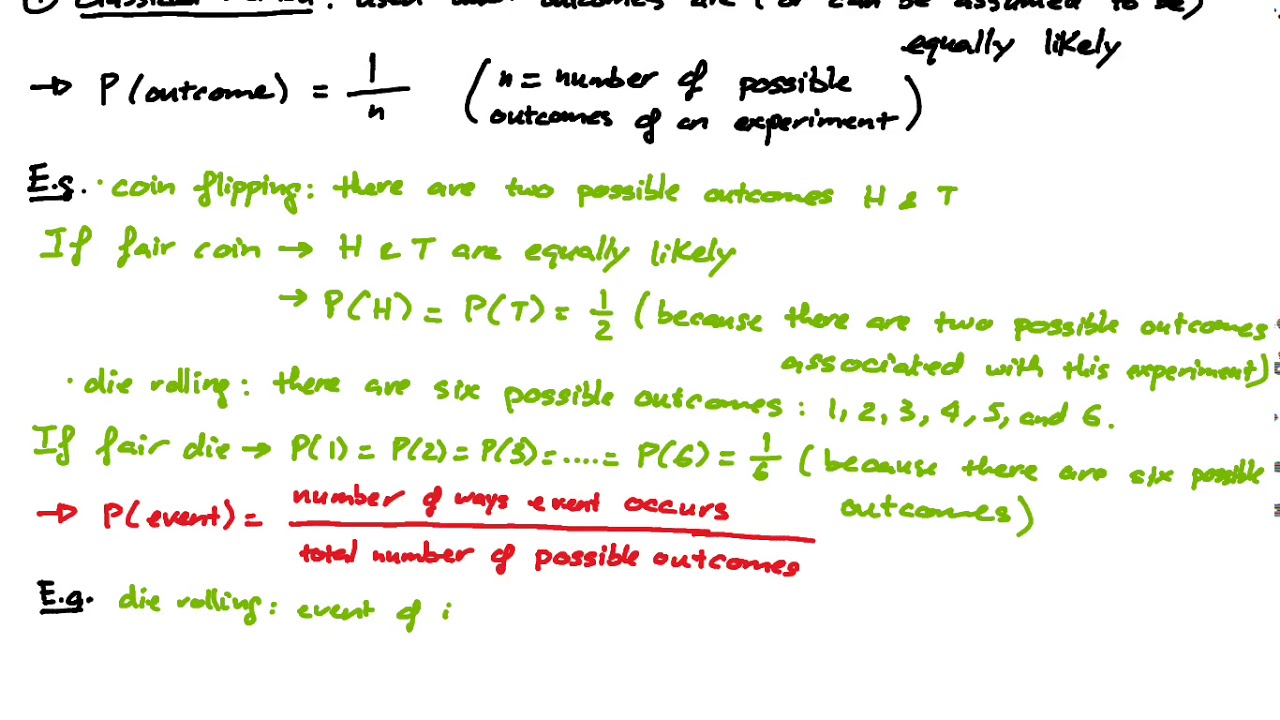 ① Classical Method: used when outcomes are (or can be assumed to be)
equally likely
→ P(outcome) = 1/n (n = number of possible
outcomes of an experiment)
E.g. · coin flipping: there are two possible outcomes H & T
If fair coin → H & T are equally likely
→ P(H) = P(T) = 1/2 (because there are two possible outcomes
associated with this experiment)
· die rolling: there are six possible outcomes: 1, 2, 3, 4, 5, and 6.
If fair die → P(1) = P(2) = P(3) = .... = P(6) = 1/6 (because there are six possible
outcomes)
→ P(event) = number of ways event occurs
total number of possible outcomes
E.g. die rolling: event of i